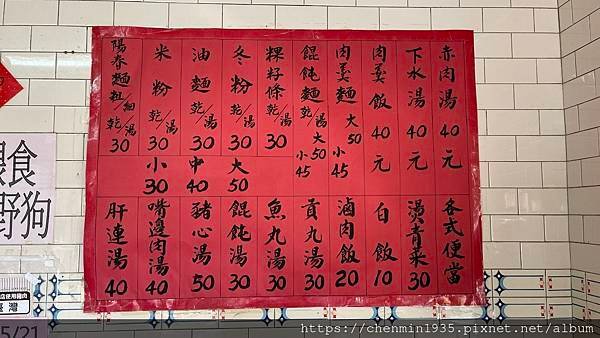 赤肉湯 40元
下水湯 40元
肉羹飯 40元
肉羹麵 大50 小45
餛飩麵 乾/湯 大50 小45
粿籽條 乾/湯 30
冬粉 乾/湯 30
油麵 乾/湯 30
米粉 乾/湯 30
陽春麵 粗/細 乾/湯 30
大 50
中 40
小 30
各式便當
燙青菜 30
白飯 10
滷肉飯 20
貢丸湯 30
魚丸湯 30
餛飩湯 30
豬心湯 50
嘴邊肉湯 40
肝連湯 40
食
野狗
臺灣
5/21
https://chenmin1935.pixnet.net/album